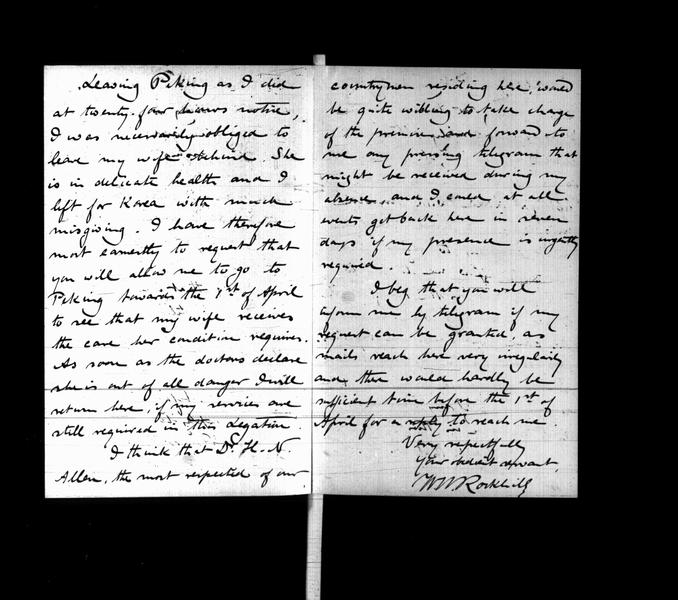 Leaving Peking as I did
at twenty-four hours notice,
I was necessarily obliged to
leave my wife behind. She
is in delicate health and I
left for Korea with much
misgiving. I have therefore
most earnestly to request that
you will allow me to go to
Peking towards the 1st of April
to see that my wife receives
the care her condition requires.
As soon as the doctors declare
she is out of all danger I will
return here, if my services are
still required in this Legation.
I think that Dr. H. N.
Allen, the most respected of our
countrymen residing here, would
be quite willing to take charge
of the premises and forward to
me any pressing telegram that
might be received during my
absence, and I could at all
events get back here in seven
days if my presence is urgently
required.
I beg that you will
inform me by telegram if my
request can be granted, as
mails reach here very irregularly
and there would hardly be
sufficient time before the 1st of
April for a reply to reach me.
Very respectfully
Your obedient servant
W W Rockhill